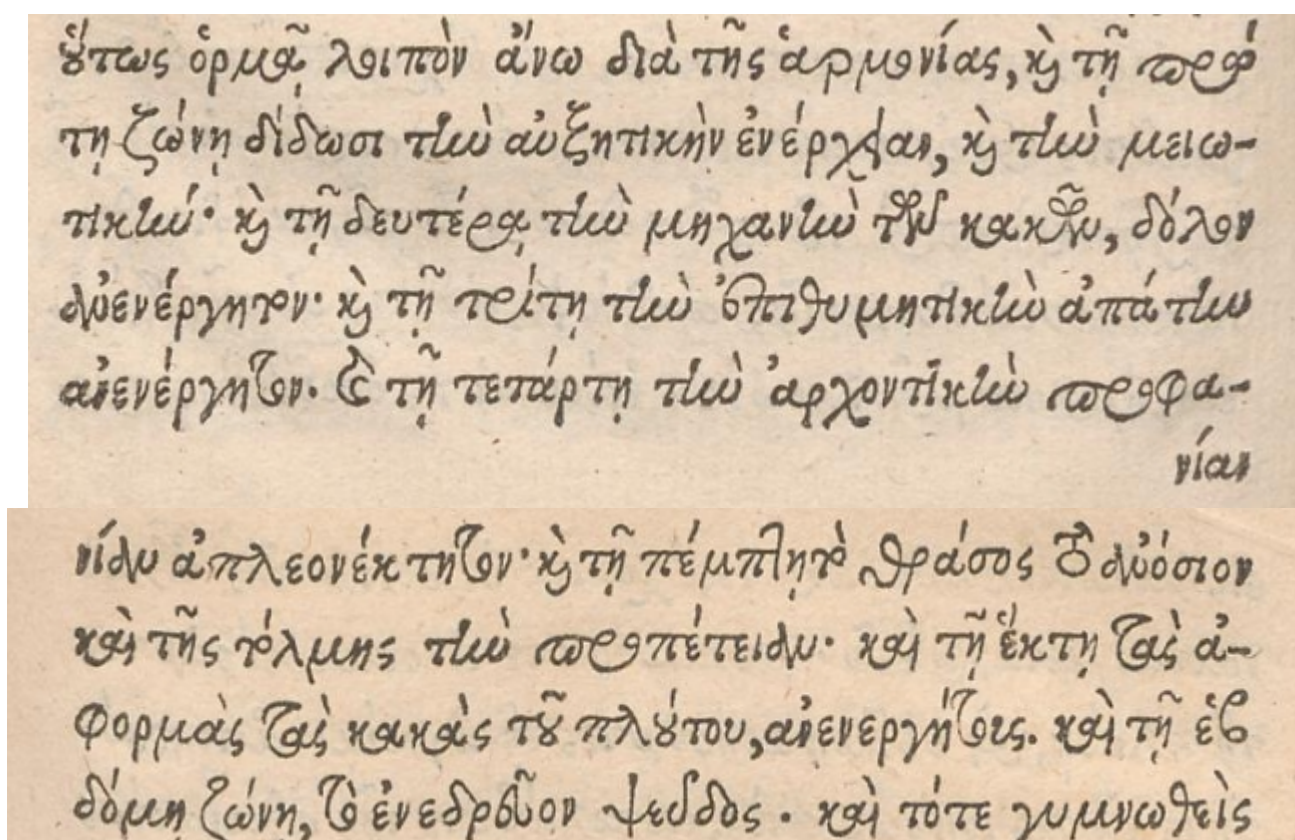 οὕτως ὁρμᾷ λοιπὸν ἄνω διὰ τῆς ἁρμονίας, καὶ τῇ πρώ
τῃ ζώνῃ δίδωσι τὴν αὐξητικὴν ἐνέργειαν, καὶ τὴν μειω-
τικήν· καὶ τῇ δευτέρᾳ τὴν μηχανὴν τῶν κακῶν, δόλον
ἀνενέργητον· καὶ τῇ τρίτῃ τὴν ἐπιθυμητικὴν ἀπάτην
ἀνενέργητον. καὶ τῇ τετάρτῃ τὴν ἀρχοντικὴν προφα-
νίαν
νίαν ἀπλεονέκτητον· καὶ τῇ πέμπτῃ τὸ θράσος τὸ ἀνόσιον
καὶ τῆς τόλμης τὴν προπέτειαν· καὶ τῇ ἕκτῃ τὰς ἀ-
φορμὰς τὰς κακὰς τοῦ πλούτου, ἀνενεργήτοις. καὶ τῇ ἑβ
δόμῃ ζώνῃ, τὸ ἐνεδρεῦον ψεῦδος. καὶ τότε γυμνωθεὶς